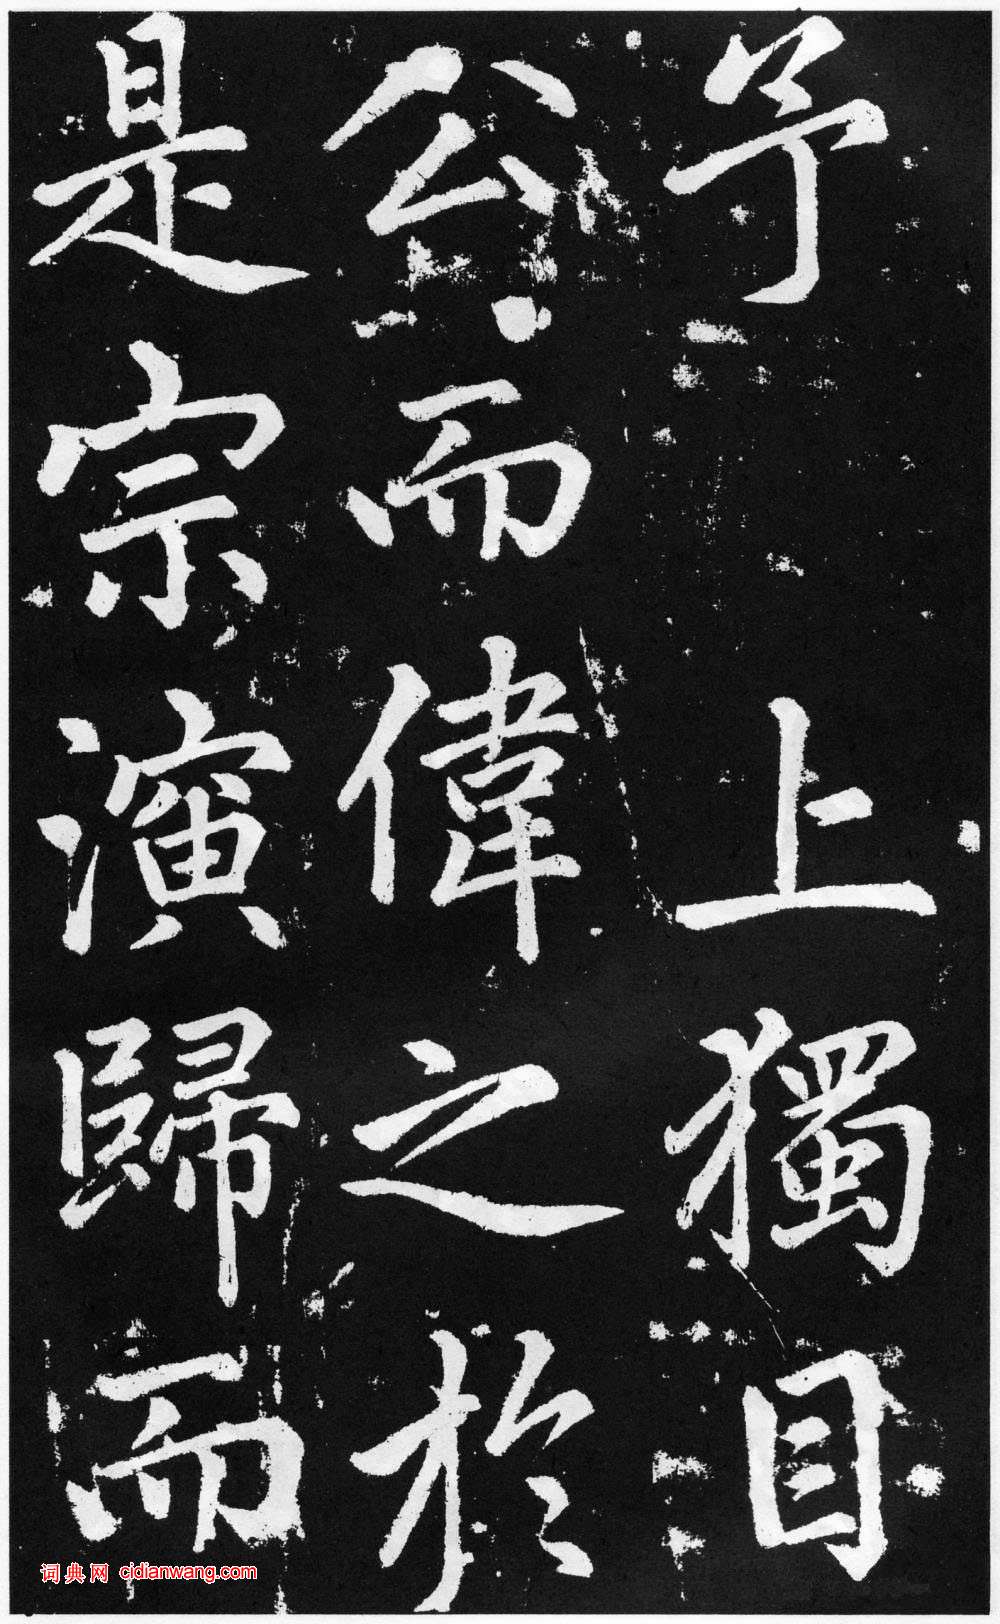 予 上獨目
公而偉之於
是宗演歸而
词典网 cidianwang.com